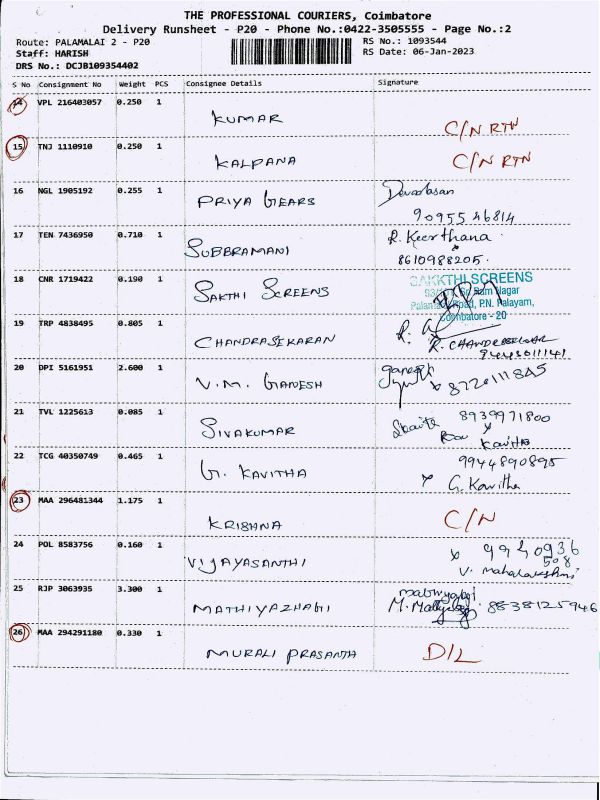 THE PROFESSIONAL COURIERS, Coimbatore
Delivery Runsheet - P20 - Phone No.:0422-3505555 - Page No.:2
Route: PALAMALAI 2 - P20
Staff: HARISH
DRS No.: DCJB109354402
RS No.: 1093544
RS Date: 06-Jan-2023
S No Consignment No Weight PCS Consignee Details Signature
14 VPL 216403057 0.250 1 KUMAR C/N RTN
15 TNJ 1110910 0.250 1 KALPANA C/N RTN
16 NGL 1905192 0.255 1 PRIYA GEARS
9095546814
17 TEN 7436950 0.710 1 SUBBRAMANI R. Keerthana
8610988205.
18 CNR 1719422 0.190 1 SAKTHI SCREENS SAKKTHI SCREENS
Ram Nagar
Road, P.N. Palayam,
Coimbatore - 20
19 TRP 4838495 0.805 1 CHANDRASEKARAN
R. CHANDRASEKAR
20 DPI 5161951 2.600 1 V.M. GANESH ganesh
8220111845
21 TVL 1225613 0.085 1 SIVAKUMAR 8939971800
Kavitha
22 TCG 40350749 0.465 1 G. KAVITHA 9944890895
G. Kavitha
23 MAA 296481344 1.175 1 KRISHNA C/N
24 POL 8583756 0.160 1 VIJAYASANTHI x 9940936
508
V. mahalakshmi
25 RJP 3063935 3.300 1 MATHIYAZHAGI
8838125946
26 MAA 294291180 0.330 1 MURALI PRASANTH D/L